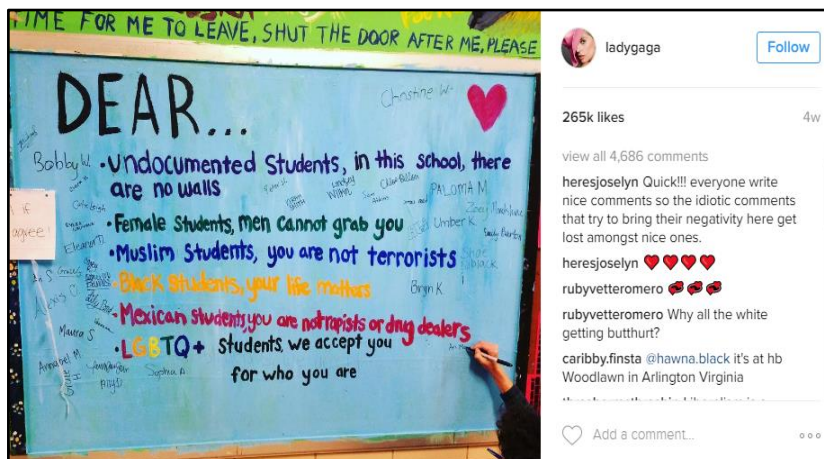 TIME FOR ME TO LEAVE, SHUT THE DOOR AFTER ME, PLEASE
DEAR...
Christine W.
Bobby W.
•Undocumented Students, in this school, there
are no walls
•Female Students, men cannot grab you
•Muslim Students, you are not terrorists
•Black Students, your life matters
•Mexican Students, you are not rapists or drug dealers
•LGBTQ+ students, we accept you
for who you are
if
agree!
PALOMA M
Umber K
Bryn K
Eleanor D.
Alexis C
Maura S
Annabel M
Sophia A
ladygaga
Follow
265k likes
4w
view all 4,686 comments
heresjoselyn Quick!!! everyone write
nice comments so the idiotic comments
that try to bring their negativity here get
lost amongst nice ones.
heresjoselyn ♥♥♥♥
rubyvetteromero
rubyvetteromero Why all the white
getting butthurt?
caribby.finsta @hawna.black it's at hb
Woodlawn in Arlington Virginia
Add a comment...